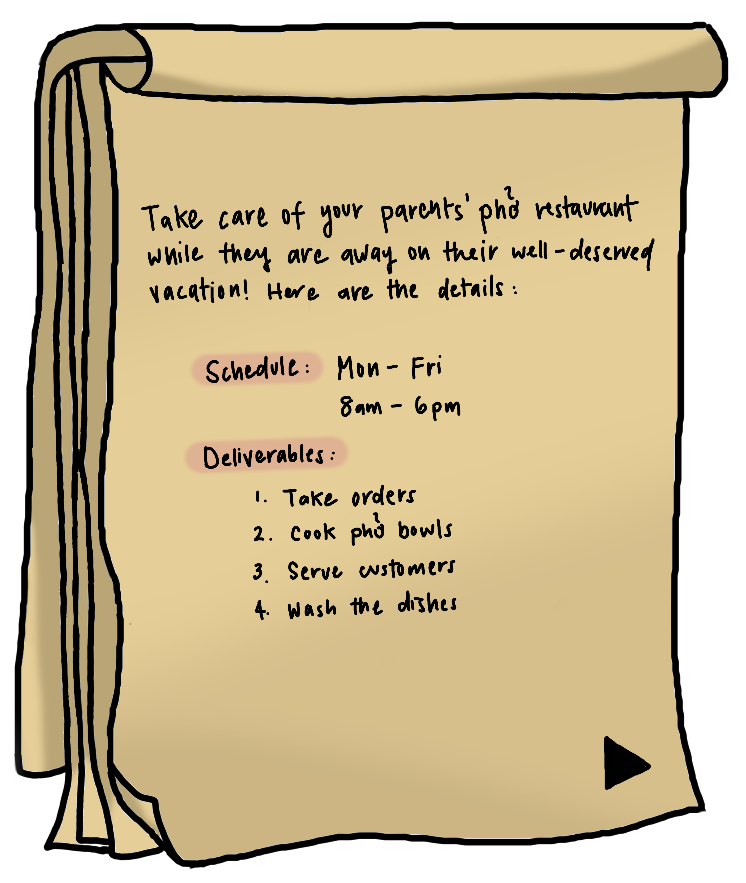 Take care of your parents' phở restaurant
while they are away on their well-deserved
vacation! Here are the details:
Schedule: Mon - Fri
8am - 6pm
Deliverables:
1. Take orders
2. Cook phở bowls
3. Serve customers
4. Wash the dishes